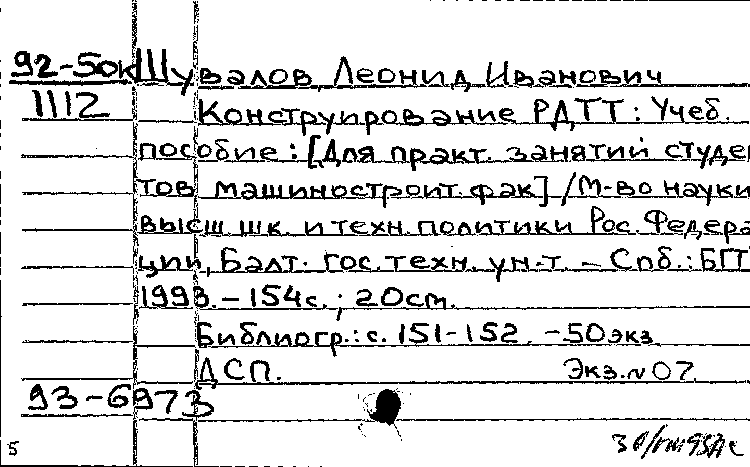 92-50к Шувалов, Леонид Иванович
1112 Конструирование РДТТ: Учеб.
пособие: [Для практ. занятий студен
тов машиностроит. фак] / М-во науки
высш шк. и техн. политики Рос. Федера
ции, Балт. гос. техн. ун-т. – Спб.: БГТ
1993. – 154с.; 20см.
Библиогр.: с. 151-152. – 50экз.
ДСП. Экз.N 07.
93-6973
5